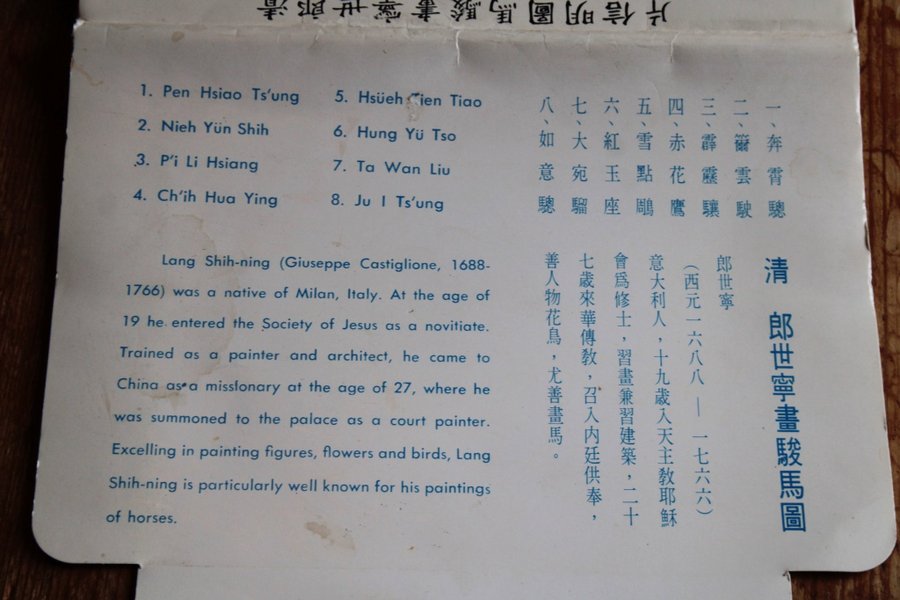 清郎世寧畫駿馬圖明信片
1. Pen Hsiao Ts'ung
2. Nieh Yün Shih
3. P'i Li Hsiang
4. Ch'ih Hua Ying
5. Hsüeh Tien Tiao
6. Hung Yü Tso
7. Ta Wan Liu
8. Ju I Ts'ung
Lang Shih-ning (Giuseppe Castiglione, 1688-
1766) was a native of Milan, Italy. At the age of
19 he entered the Society of Jesus as a novitiate.
Trained as a painter and architect, he came to
China as a missionary at the age of 27, where he
was summoned to the palace as a court painter.
Excelling in painting figures, flowers and birds, Lang
Shih-ning is particularly well known for his paintings
of horses.
一、奔霄驄
二、籋雲駛
三、霹靂驤
四、赤花鷹
五、雪點鵰
六、紅玉座
七、大宛騮
八、如意驄
清 郎世寧畫駿馬圖
郎世寧
(西元一六八八 — 一七六六)
意大利人，十九歲入天主教耶穌
會爲修士，習畫兼習建築，二十
七歲來華傳教，召入内廷供奉，
善人物花鳥，尤善畫馬。